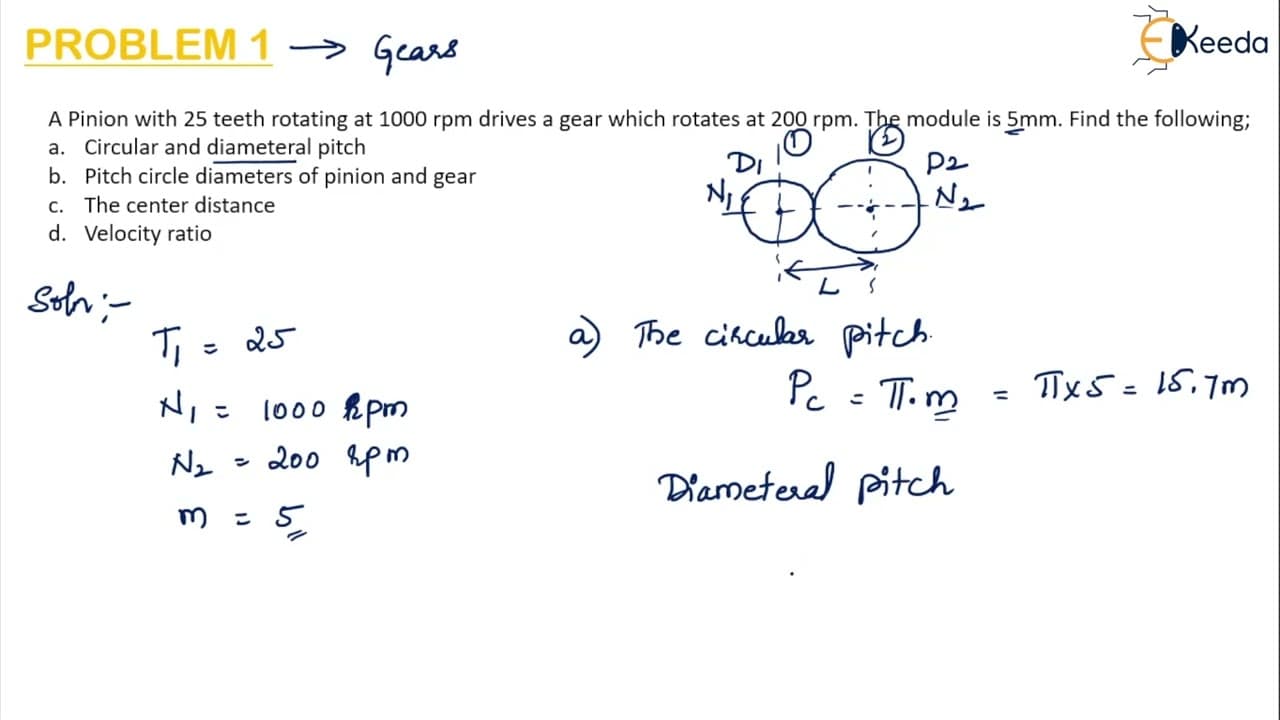 PROBLEM 1 → Gears
EKeeda
A Pinion with 25 teeth rotating at 1000 rpm drives a gear which rotates at 200 rpm. The module is 5mm. Find the following;
a. Circular and diameteral pitch
b. Pitch circle diameters of pinion and gear
c. The center distance
d. Velocity ratio
① ②
D1 D2
N1 N2
L
Soln :-
T1 = 25
N1 = 1000 rpm
N2 = 200 rpm
m = 5
a) The circular pitch.
Pc = π.m = π×5 = 15.7m
Diameteral pitch